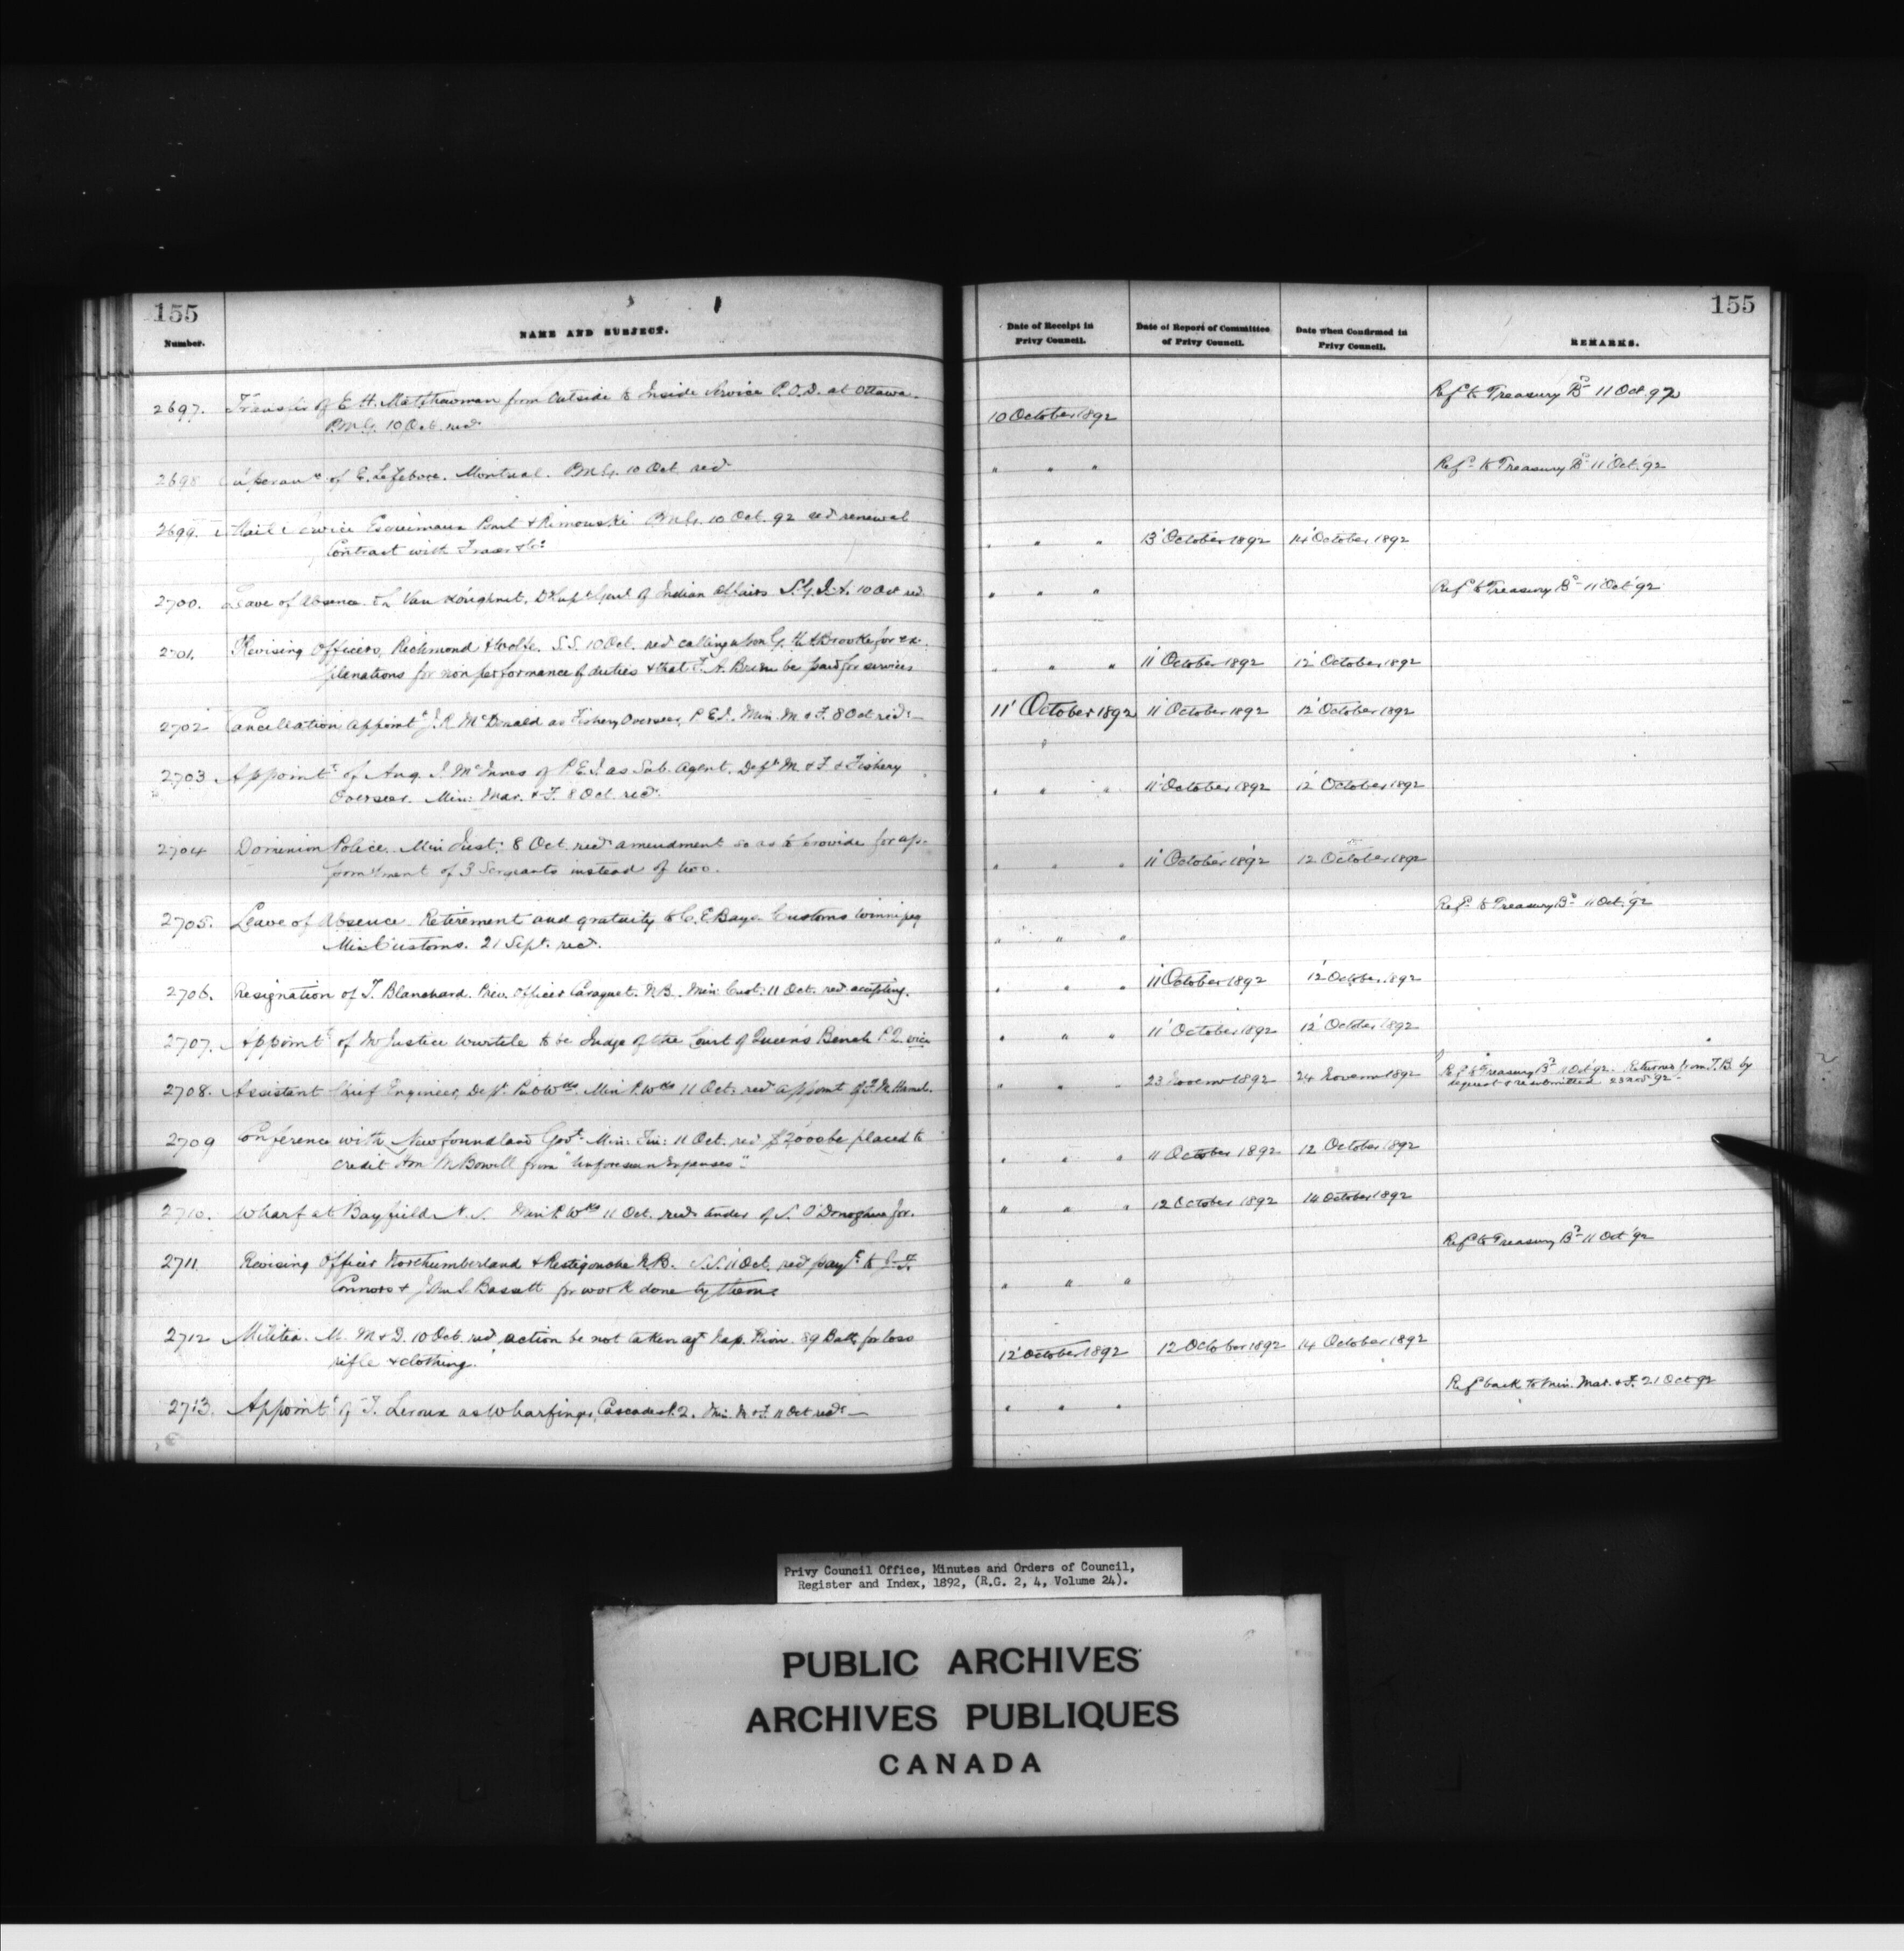 155
155
Number.
NAME AND SUBJECT.
Date of Receipt in Privy Council.
Date of Report of Committee of Privy Council.
Date when Confirmed in Privy Council.
REMARKS.
2697. Transfer of E. H. Matthewman from Outside to Inside Service P.O.D. at Ottawa. Refd to Treasury Bd 11 Oct. 92
P.M.G. 10 Oct. recd 10 October 1892
2698 of E. Lefebvre. Montreal. P.M.G. 10 Oct. recd " " " Refd to Treasury Bd 11 Oct. '92
2699. Mail Service Esquimaux Point & Rimouski P.M.G. 10 Oct. 92 recd renewal
Contract with Fraser & Co. " " " 13 October 1892 14 October 1892
2700. Leave of Absence to Van Koughnet. Genl of Indian Affairs S.G.I.A. 10 Oct recd. " " " Refd to Treasury Bd 11 Oct '92
2701. Revising Officers, Richmond & Wolfe. S.S. 10 Oct. recd calling upon G. H. Brooke for ex-
planations for non performance of duties & that be paid for services " " " 11 October 1892 12 October 1892
2702 Cancellation Appointt J. R. McDonald as Fishery Overseer, P.E.I. Min. M. & F. 8 Oct recd 11 October 1892 11 October 1892 12 October 1892
2703 Appointt of Aug. J. McInnes of P.E.I. as Sub. Agent. Dept M. & F. & Fishery
Overseer. Min: Mar. & F. 8 Oct. recd. " " " 11 October 1892 12 October 1892
2704 Dominion Police. Min Just: 8 Oct. recd amendment so as to provide for ap-
pointment of 3 Sergeants instead of two. " " " 11 October 1892 12 October 1892
2705. Leave of Absence Retirement and gratuity to C. E. Customs Winnipeg Refd to Treasury Bd 11 Oct. '92
Min Customs. 21 Sept. recd. " " "
2706. Resignation of T. Blanchard. Prev. Officer Caraquet. N.B. Min: Cust: 11 Oct. recd accepting. " " " 11 October 1892 12 October 1892
2707. Appointt of Mr Justice Wurtele to be Judge of the Court of Queen's Bench P.Q. vice " " " 11 October 1892 12 October 1892
2708. Assistant Chief Engineer, Dept. Pub Wks. Min P. Wks 11 Oct. recd appoint of " " " 23 Novemr 1892 24 Novemr 1892 Refd to Treasury Bd 11 Oct '92. Returned from T.B. by
request & resubmitted 23 Nov 92
2709 Conference with Newfoundland Govt. Min: Fin: 11 Oct. recd $2,000 be placed to
credit Hon M Bowell from "Unforeseen Expenses". " " " 11 October 1892 12 October 1892
2710. Wharf at Bayfield N.S. Min P. Wks 11 Oct. recd tender of O'Donoghue for. " " " 12 October 1892 14 October 1892
2711 Revising Officer Northumberland & Restigouche N.B. S.S. 11 Oct. recd payt to Refd to Treasury Bd 11 Oct '92
Connors & John S. Bassett for work done by them. " " "
2712 Militia. M. M & D. 10 Oct. recd action be not taken agt Cap. 89 Batt. for loss
rifle & clothing. 12 October 1892 12 October 1892 14 October 1892
2713. Appointt of T. Leroux as Wharfinger, Cascades P.Q. Min. M & F 11 Oct recd " " " Refd back to Min. Mar. & F. 21 Oct 92
Privy Council Office, Minutes and Orders of Council,
Register and Index, 1892, (R.G. 2, 4, Volume 24).
PUBLIC ARCHIVES
ARCHIVES PUBLIQUES
CANADA